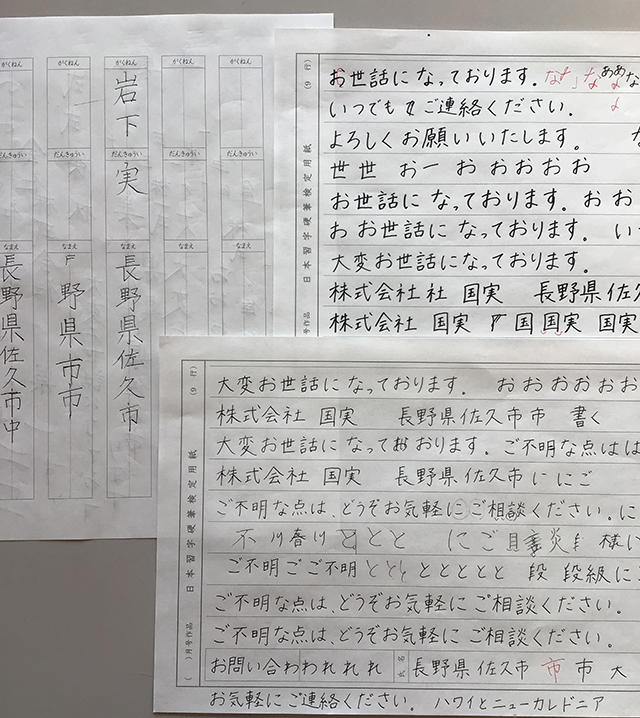 がくねん がくねん がくねん がくねん がくねん
だんきゅうい だんきゅうい だんきゅうい だんきゅうい だんきゅうい
なまえ なまえ なまえ なまえ なまえ
岩下
実
長野県佐久市
野県市市
長野県佐久市中
(9 行)
日本習字硬筆検定用紙
号作品
お世話になっております。なな」なああな
いつでも ご連絡ください。
よろしくお願いいたします。 な
世世 お一 おおおおお
お世話になっております。おお
おお世話になっております。い
大変お世話になっております。
株式会社社 国実 長野県佐久
株式会社 国実 国国実 国実
(9 行)
日本習字硬筆検定用紙
( )月号作品
大変お世話になっております。 おおおおおお
株式会社 国実 長野県佐久市市 書く
大変お世話になってお おります。ご不明な点はは
株式会社 国実 長野県佐久市 ににご
ご不明な点は、どうぞお気軽にご相談ください。に
不 川春川 とと にご
ご不明ごご不明 ととと ととととと 段 段級に
ご不明な点は、どうぞお気軽にご相談ください。
ご不明な点は、どうぞお気軽にご相談ください。
お問い合わわれれれ 氏名 長野県佐久市 市市大
お気軽にご連絡ください。 ハワイとニューカレドニア